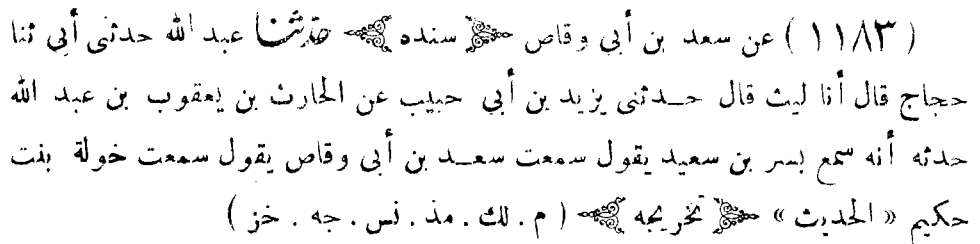 ( ١١٨٣ ) عن سعد بن أبي وقاص ﴿ سنده ﴾ حدثنا عبد الله حدثنى أبى ثنا
حجاج قال أنا ليث قال حـدثنى يزيد بن أبي حبيب عن الحارث بن يعقوب بن عبد الله
حدثه أنه سمع بسر بن سعيد يقول سمعت سعـد بن أبى وقاص يقول سمعت خولة بنت
حكيم « الحديث » ﴿ تخريجه ﴾ ( م . لك . مذ . نس . جه . خز )